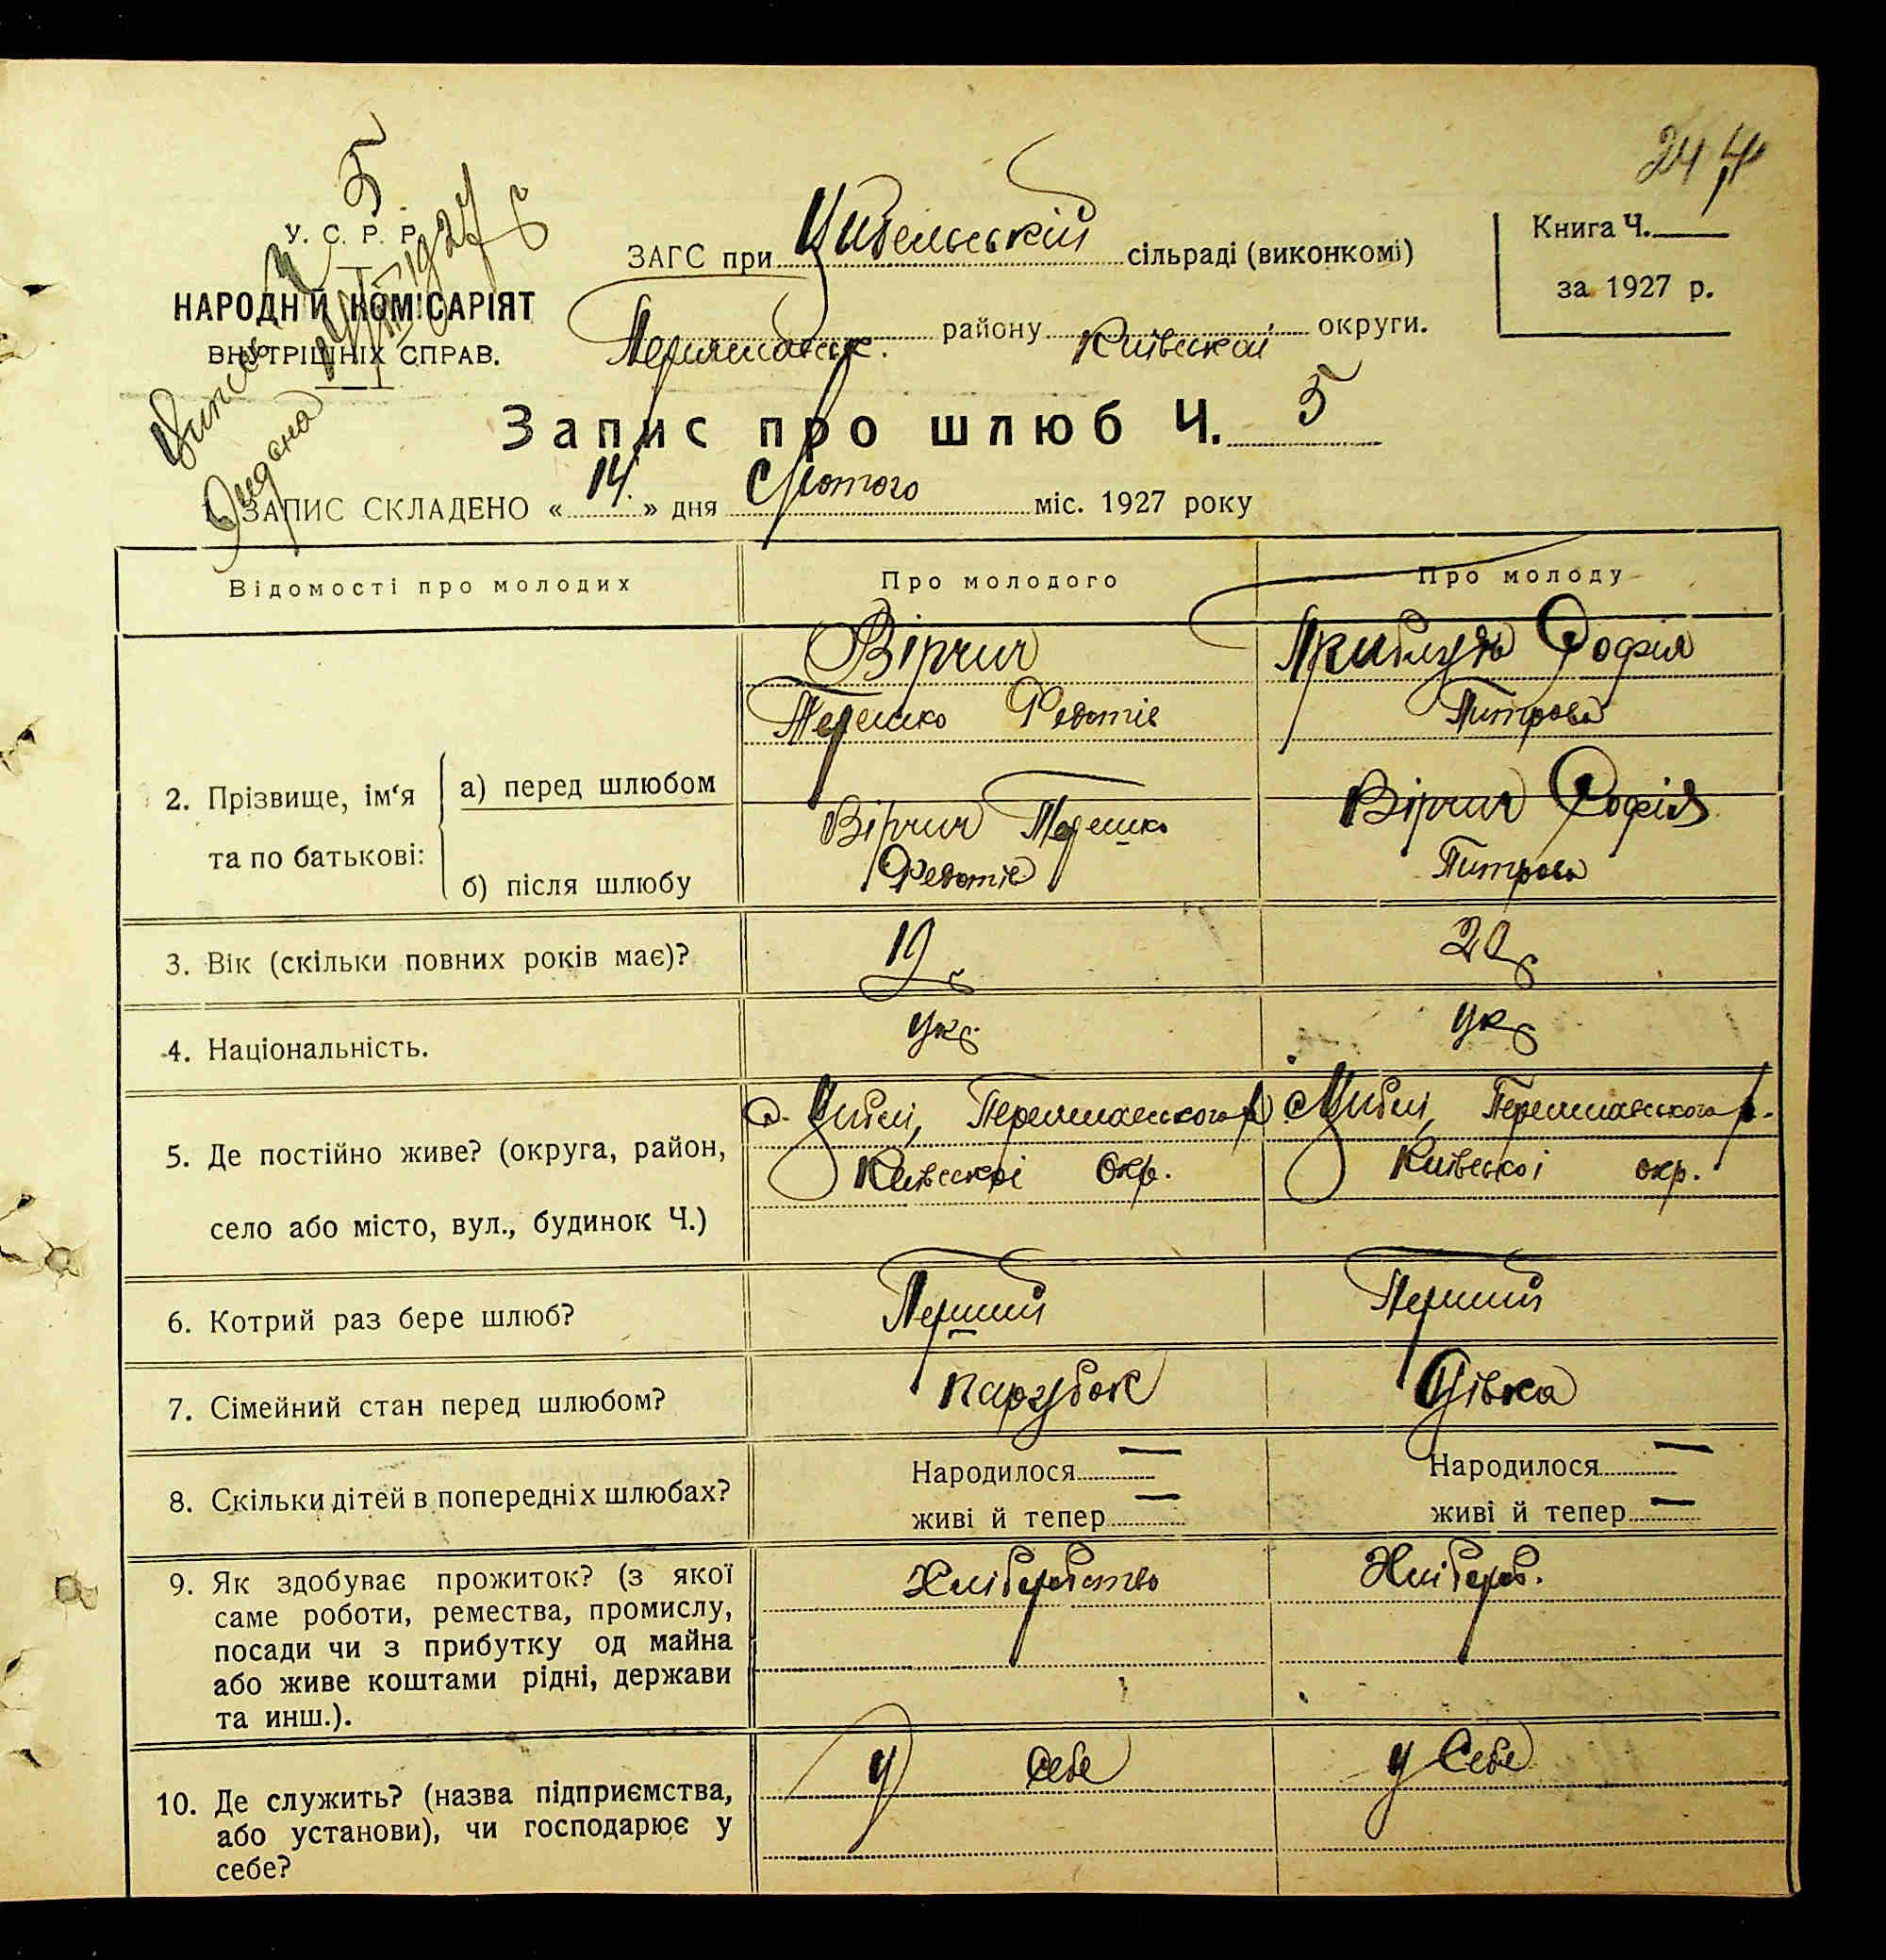 244
5
У. С. Р. Р.
НАРОДНІЙ КОМІСАРІЯТ
ВНУТРІШНІХ СПРАВ.
Випись
Видана 1927
ЗАГС при Цибельській сільраді (виконкомі)
району Київської округи.
Книга Ч.
за 1927 р.
Запис про шлюб Ч. 5
1. ЗАПИС СКЛАДЕНО « 14 » дня Лютого міс. 1927 року
Відомості про молодих
Про молодого
Про молоду
2. Прізвище, ім'я та по батькові:
а) перед шлюбом
Вірчич
Федотів
Приблуда Софія
Питрова
б) після шлюбу
Вірчич
Федотів
Вірчич Софія
Питрова
3. Вік (скільки повних років має)?
19
20
4. Національність.
Укр.
Укр
5. Де постійно живе? (округа, район,
село або місто, вул., будинок Ч.)
с. Циблі, Переяславського р.
Київської Окр.
с. Циблі, Переяславського р.
Київської окр.
6. Котрий раз бере шлюб?
Перший
Перший
7. Сімейний стан перед шлюбом?
парубок
Дівка
8. Скільки дітей в попередніх шлюбах?
Народилося —
живі й тепер —
Народилося —
живі й тепер —
9. Як здобуває прожиток? (з якої
саме роботи, ремества, промислу,
посади чи з прибутку од майна
або живе коштами рідні, держави
та инш.).
Хліборобство
Хлібороб.
10. Де служить? (назва підприємства,
або установи), чи господарює у
себе?
У себе
у Себе